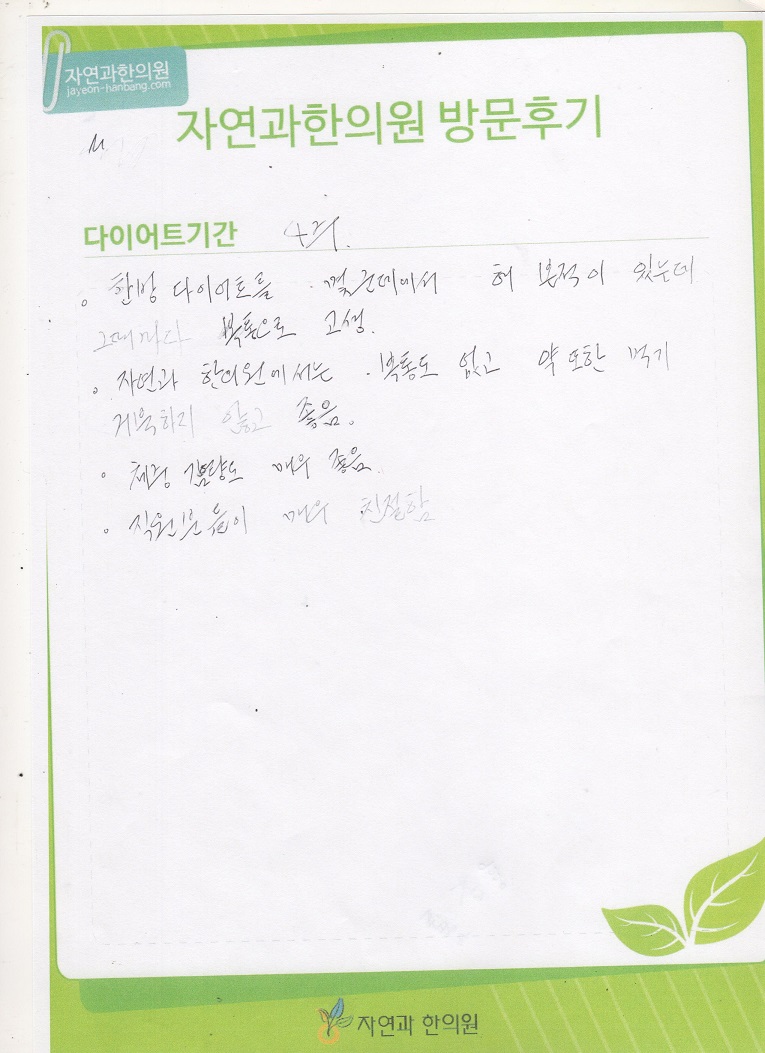 자연과한의원
jayeon-hanbang.com
자연과한의원 방문후기
다이어트기간 4주.
한방 다이어트를 몇군데에서 해 본적이 있는데
그때마다 복통으로 고생.
자연과 한의원에서는 복통도 없고 약 또한 먹기
거북하지 않고 좋음.
체중 감량도 매우 좋음.
직원분들이 매우 친절함
자연과 한의원